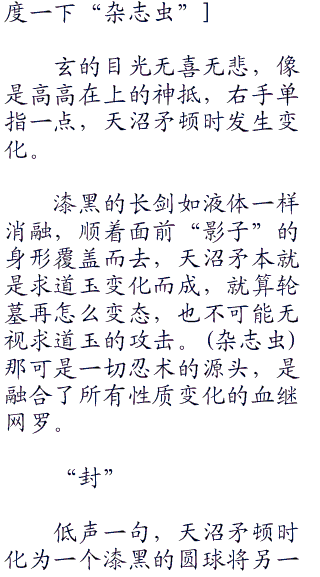 度一下“杂志虫”]
玄的目光无喜无悲，像
是高高在上的神抵，右手单
指一点，天沼矛顿时发生变
化。
漆黑的长剑如液体一样
消融，顺着面前“影子”的
身形覆盖而去，天沼矛本就
是求道玉变化而成，就算轮
墓再怎么变态，也不可能无
视求道玉的攻击。(杂志虫)
那可是一切忍术的源头，是
融合了所有性质变化的血继
网罗。
“封”
低声一句，天沼矛顿时
化为一个漆黑的圆球将另一